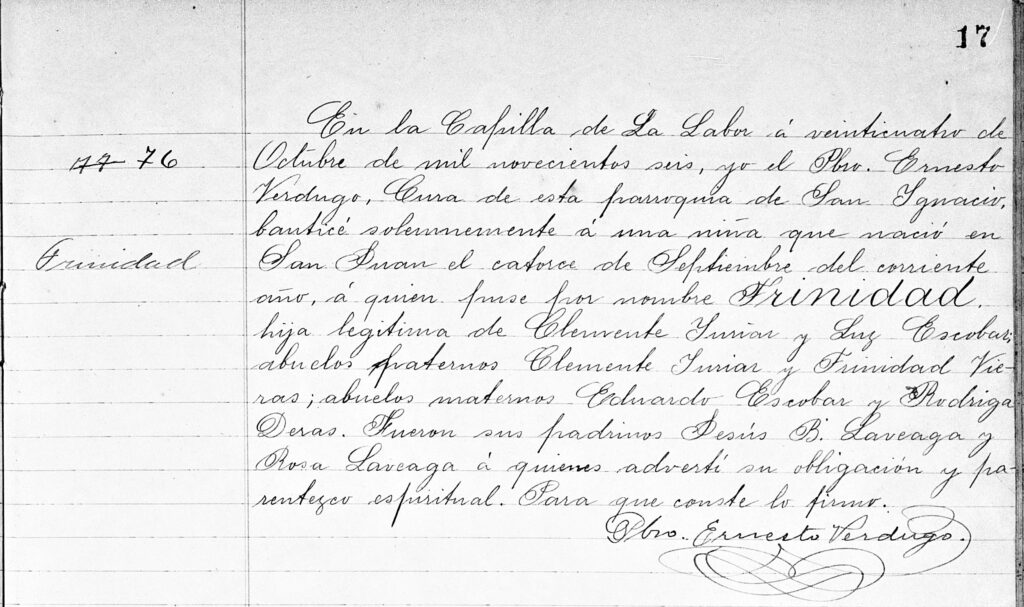 17
En la Capilla de La Labor á veinticuatro de
77 76
Octubre de mil novecientos seis, yo el Pbro. Ernesto
Verdugo, Cura de esta parroquia de San Ignacio,
bauticé solemnemente á una niña que nació en
Trinidad
San Juan el catorce de Septiembre del corriente
año, á quien puse por nombre Trinidad,
hija legítima de Clemente Iuriar y Luz Escobar;
abuelos paternos Clemente Iuriar y Trinidad Vie-
ras; abuelos maternos Eduardo Escobar y Rodriga
Deras. Fueron sus padrinos Jesús B. Laveaga y
Rosa Laveaga á quienes advertí su obligación y pa-
rentezco espiritual. Para que conste lo firmo.
Pbro. Ernesto Verdugo.